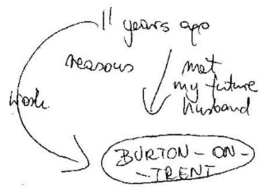 11 years ago
reasons
met
my future
husband
work
BURTON-ON-
-TRENT